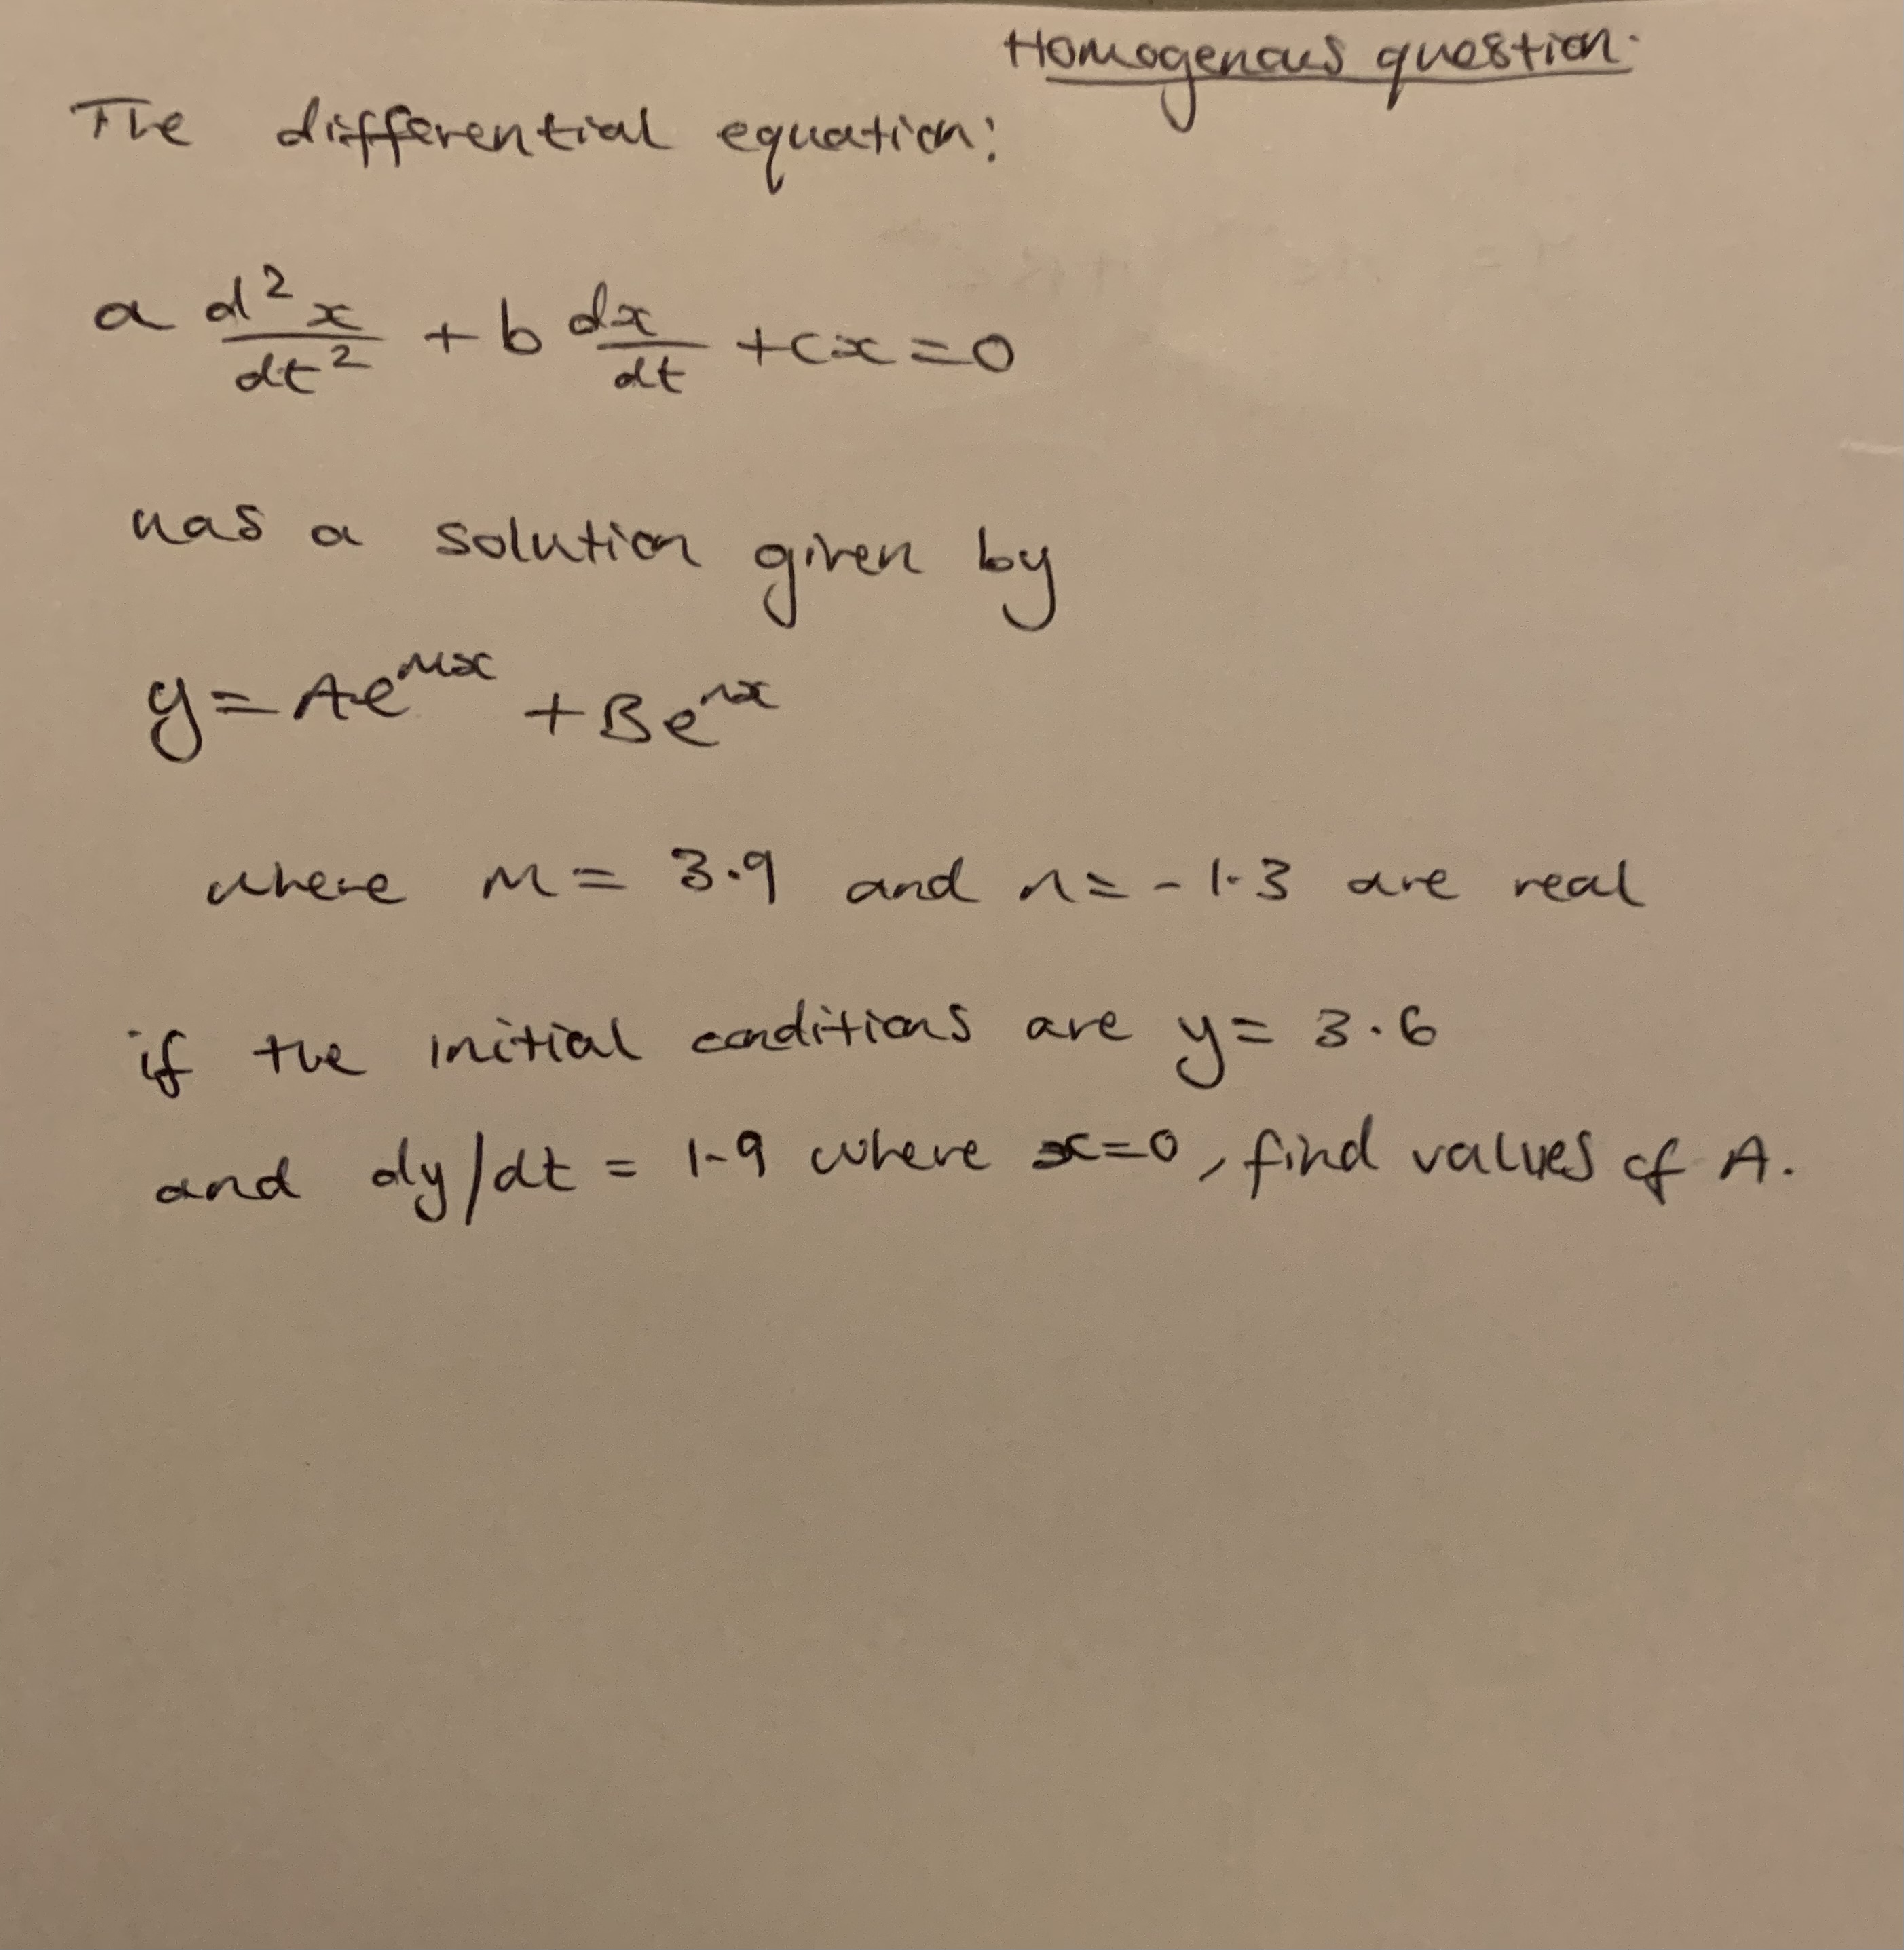 Homogenous question.
The differential equation:
a d²x/dt² + b dx/dt + cx = 0
has a solution given by
y = Ae^mx + Be^nx
where m = 3.9 and n = -1.3 are real
if the initial conditions are y = 3.6
and dy/dt = 1.9 where x=0, find values of A.